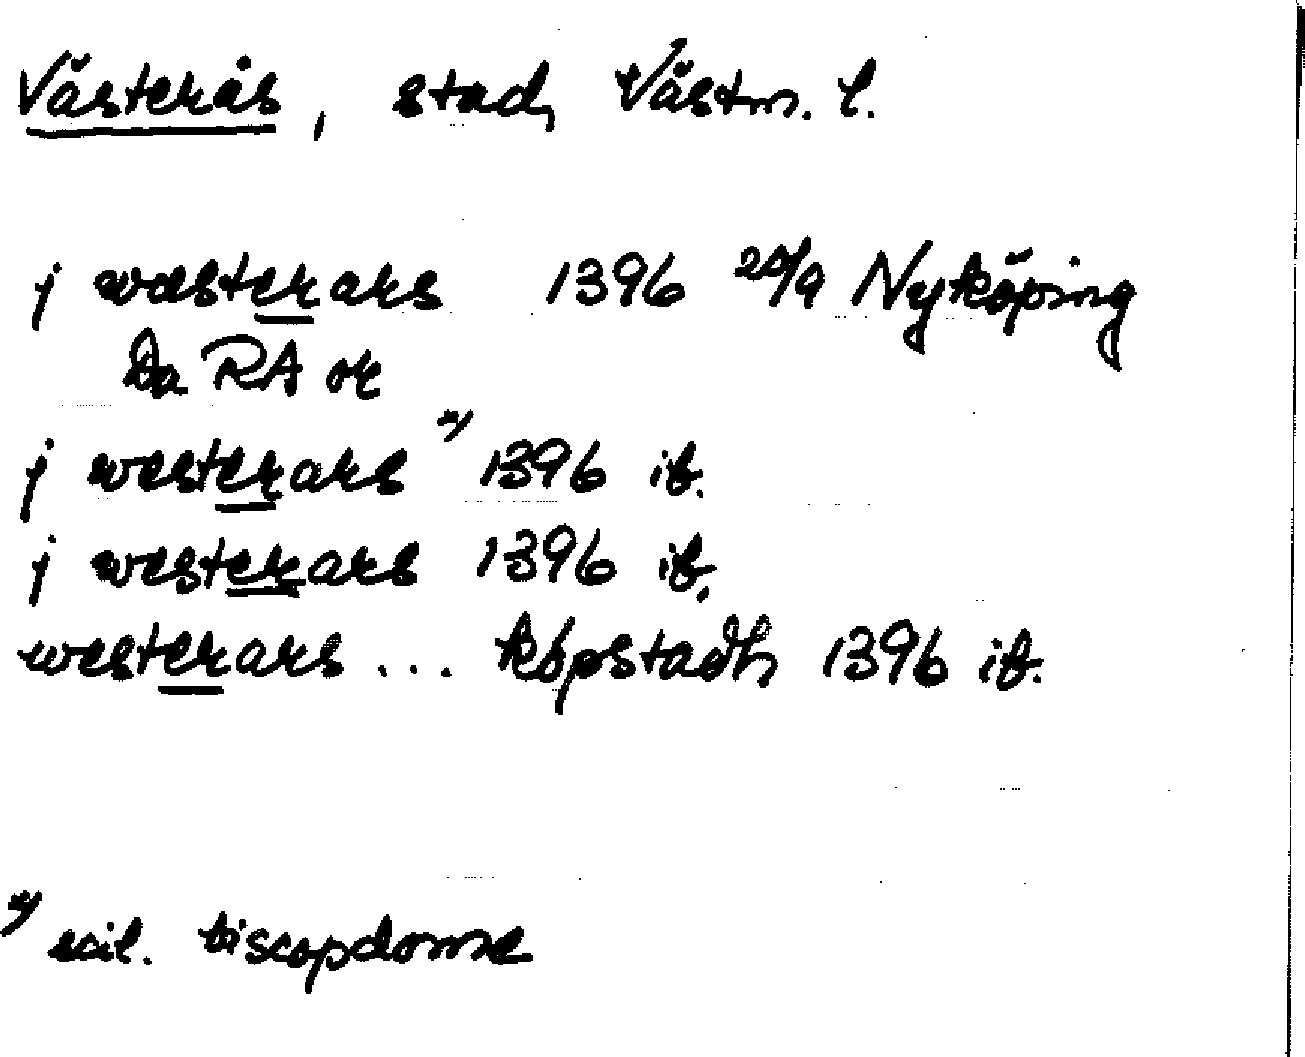 Västerås, stad, Västm. l.
j wæsterars 1396 20/9 Nyköping
Da RA or
j westerars x) 1396 ib.
j westerars 1396 ib.
westerars ... köpstadh 1396 ib.
x) scil. biscopdome